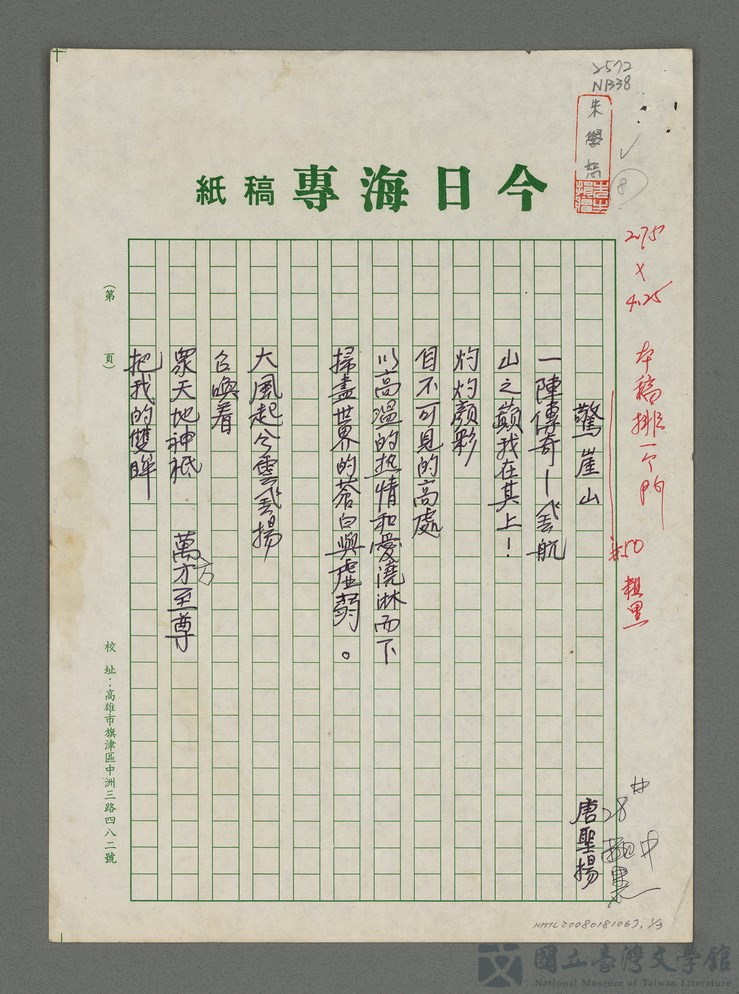 2572
NB38
朱學恕
8
今日海專稿紙
2.75
×
4.25
本稿排一个門
#50 粗黑
驚崖山
唐聖揚
28#
中
一陣傳奇—飛航
山之巔我在其上！
灼灼顏彩
目不可見的高處
以高溫的热情和愛澆淋而下
掃盡世界的蒼白與虛弱。
大風起兮雲飛揚
召喚着
眾天地神祗　萬方至尊
把我的雙眸
（第　頁）
校址：高雄市旗津區中洲三路四八二號
NMTL20080181067, 1/3
國立臺灣文學館
National Museum of Taiwan Literature